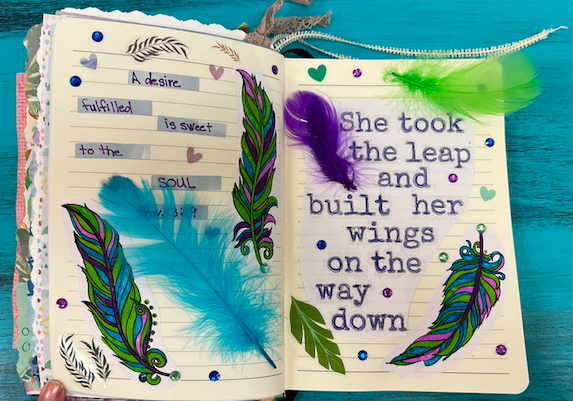 A desire
fulfilled
is sweet
to the
SOUL
She took
the leap
and
built her
wings
on the
way
down